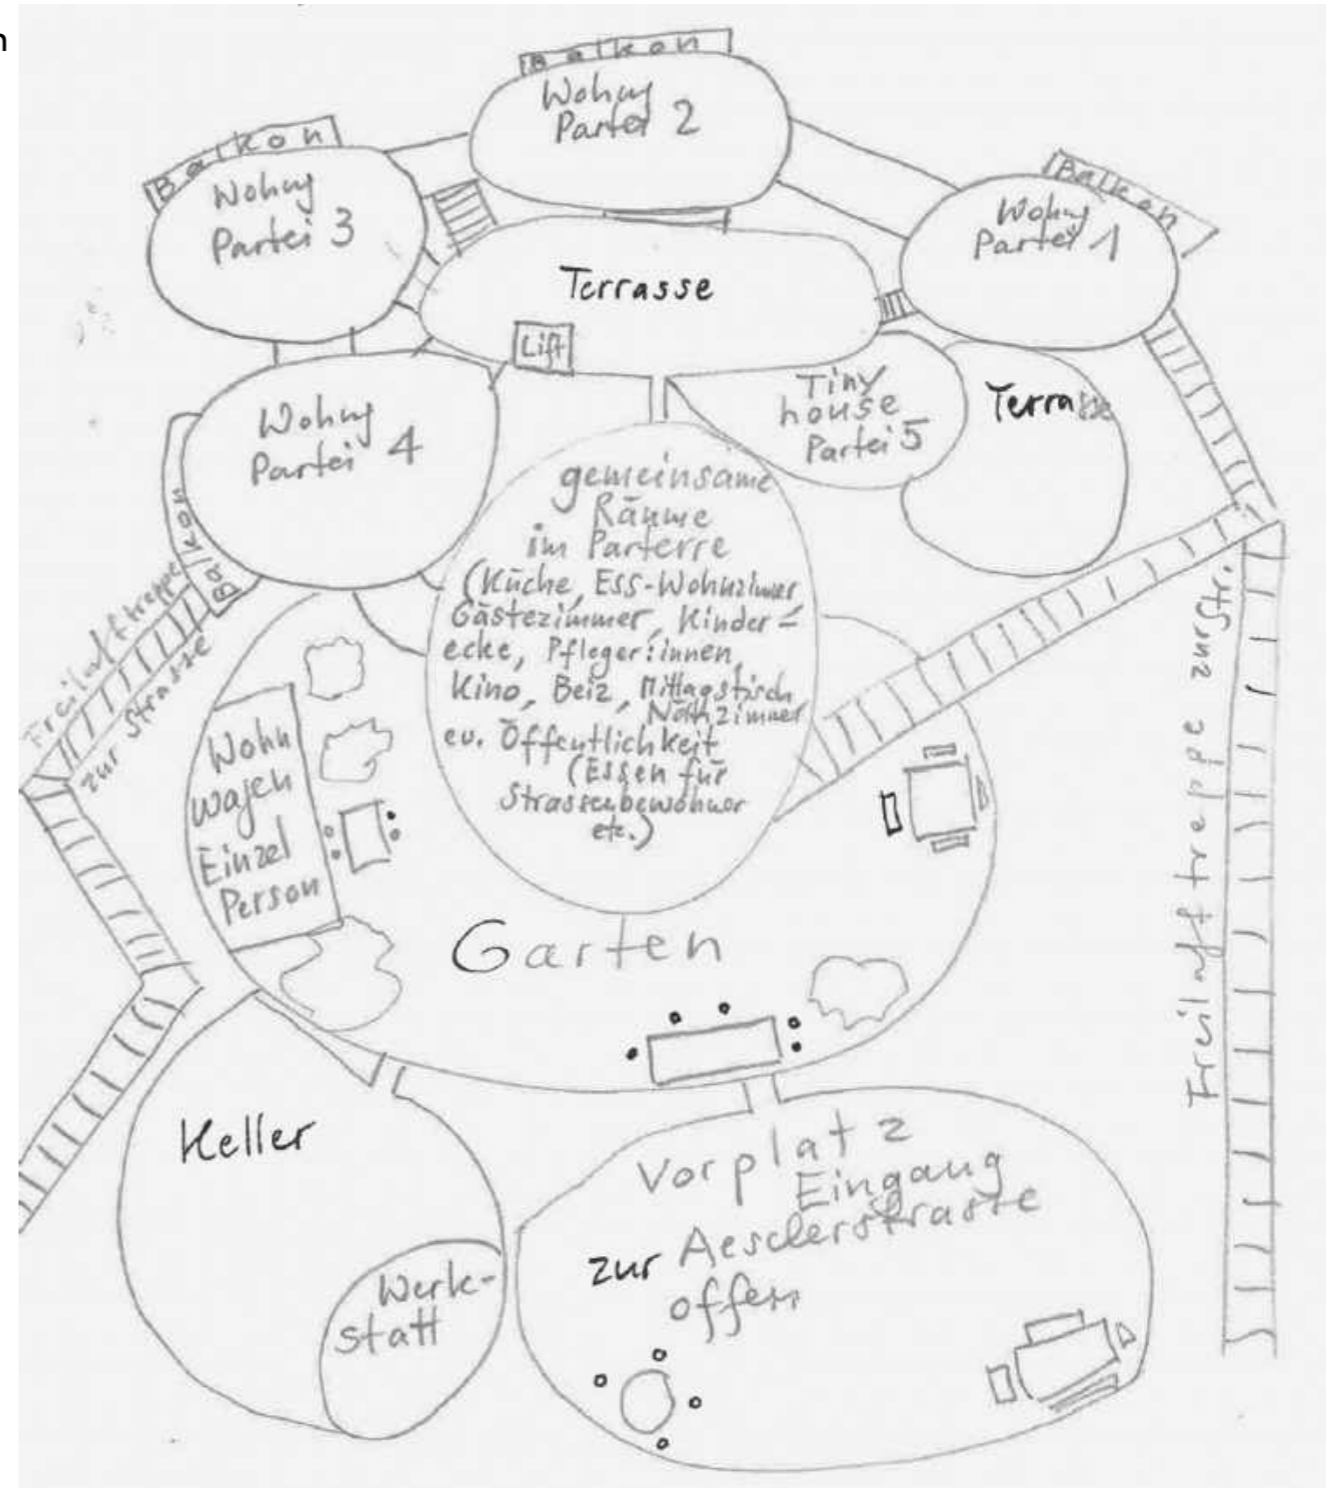 n
Balkon
Wohng
Partei 2
Balkon
Wohng
Partei 3
Balkon
Wohng
Partei 1
Terrasse
Lift
Tiny
house
Partei 5
Terrasse
Wohng
Partei 4
Balkon
gemeinsame
Räume
im Parterre
(Küche, Ess-Wohnzimmer
Gästezimmer, Kinder-
ecke, Pfleger:innen,
Kino, Beiz, Mittagstisch
Nähzimmer
ev. Öffentlichkeit
(Essen für
Strassenbewohner
etc.)
Freilufttreppe
zur Strasse
Wohn
wagen
Einzel
Person
Garten
Freilufttreppe zur Str.
Keller
Werk-
statt
Vorplatz
Eingang
zur Aesclerstrasse
offen